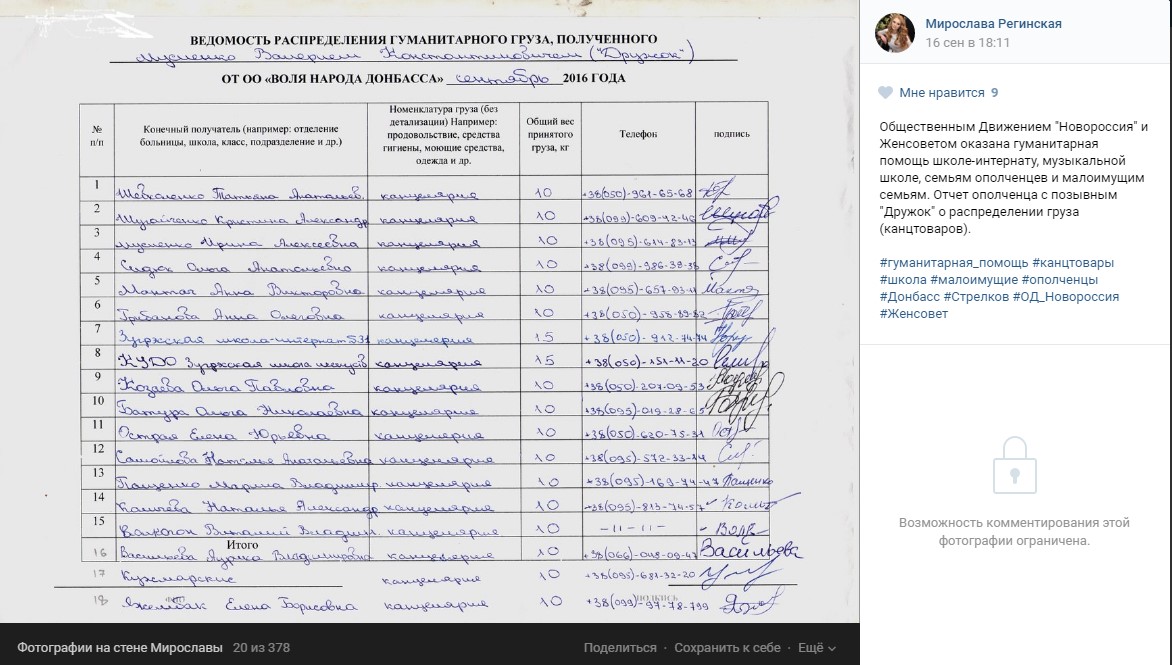 ВЕДОМОСТЬ РАСПРЕДЕЛЕНИЯ ГУМАНИТАРНОГО ГРУЗА, ПОЛУЧЕННОГО
Валерием Константиновичем ("Дружок")
ОТ ОО «ВОЛЯ НАРОДА ДОНБАССА» сентябрь 2016 ГОДА
№ п/п Конечный получатель (например: отделение больницы, школа, класс, подразделение и др.) Номенклатура груза (без детализации) Например: продовольствие, средства гигиены, моющие средства, одежда и др. Общий вес принятого груза, кг Телефон подпись
1 Татьяна канцелярия 10 +38(050)-961-65-68
2 Кристина Александр канцелярия 10 +38(099)-609-42-46
3 Ирина Алексеевна канцелярия 10
4 Ольга Анатольевна канцелярия 10 +38(099)-986-38-38
5 Анна Викторовна канцелярия 10
6 Грибанова Анна Олеговна канцелярия 10
7 Зугрэская школа-интернат №31 канцелярия 15 +38(050)-912-74-74
8 Зугрэская школа канцелярия 15 +38(050)-151-11-20
9 Козаева Ольга Павловна канцелярия 10 +38(050)-207-09-53
10 Батура Ольга Николаевна канцелярия 10 +38(095)-019-28-65
11 Острая Елена Юрьевна канцелярия 10 +38(050)-620-75-31
12 Самойлова Наталья канцелярия 10 +38(095)-572-33-14
13 Пащенко Марина Владимир. канцелярия 10 +38(095)-169-74-47 Пащенко
14 Наталья Александр канцелярия 10 +38(095)-813-74-57
15 Виталий Владим. канцелярия 10 -11-11-
Итого
16 Васильева Владимировна канцелярия 10 +38(066)-048-09-47 Васильева
17 канцелярия 10 +38(095)-681-32-20
18 Елена Борисовна канцелярия 10 +38(099)-97-78-799
ФИО ПОДПИСЬ
Мирослава Регинская
16 сен в 18:11
Мне нравится 9
Общественным Движением "Новороссия" и
Женсоветом оказана гуманитарная
помощь школе-интернату, музыкальной
школе, семьям ополченцев и малоимущим
семьям. Отчет ополченца с позывным
"Дружок" о распределении груза
(канцтоваров).
#гуманитарная_помощь #канцтовары
#школа #малоимущие #ополченцы
#Донбасс #Стрелков #ОД_Новороссия
#Женсовет
Возможность комментирования этой
фотографии ограничена.
Фотографии на стене Мирославы 20 из 378 Поделиться · Сохранить к себе · Ещё